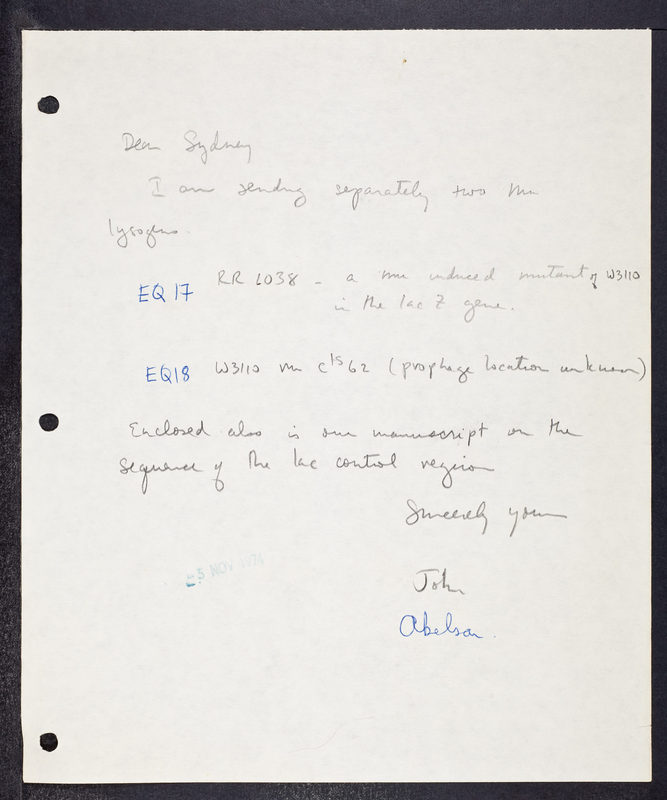 Dear Sydney
I am sending separately two mu
lysogens.
EQ 17 RR 1038 - a mu induced mutant of W3110
in the lac Z gene.
EQ18 W3110 mu cts62 (prophage location unknown)
Enclosed also is our manuscript on the
sequence of the lac control region
Sincerely yours
5 NOV 1974
John
Abelson.